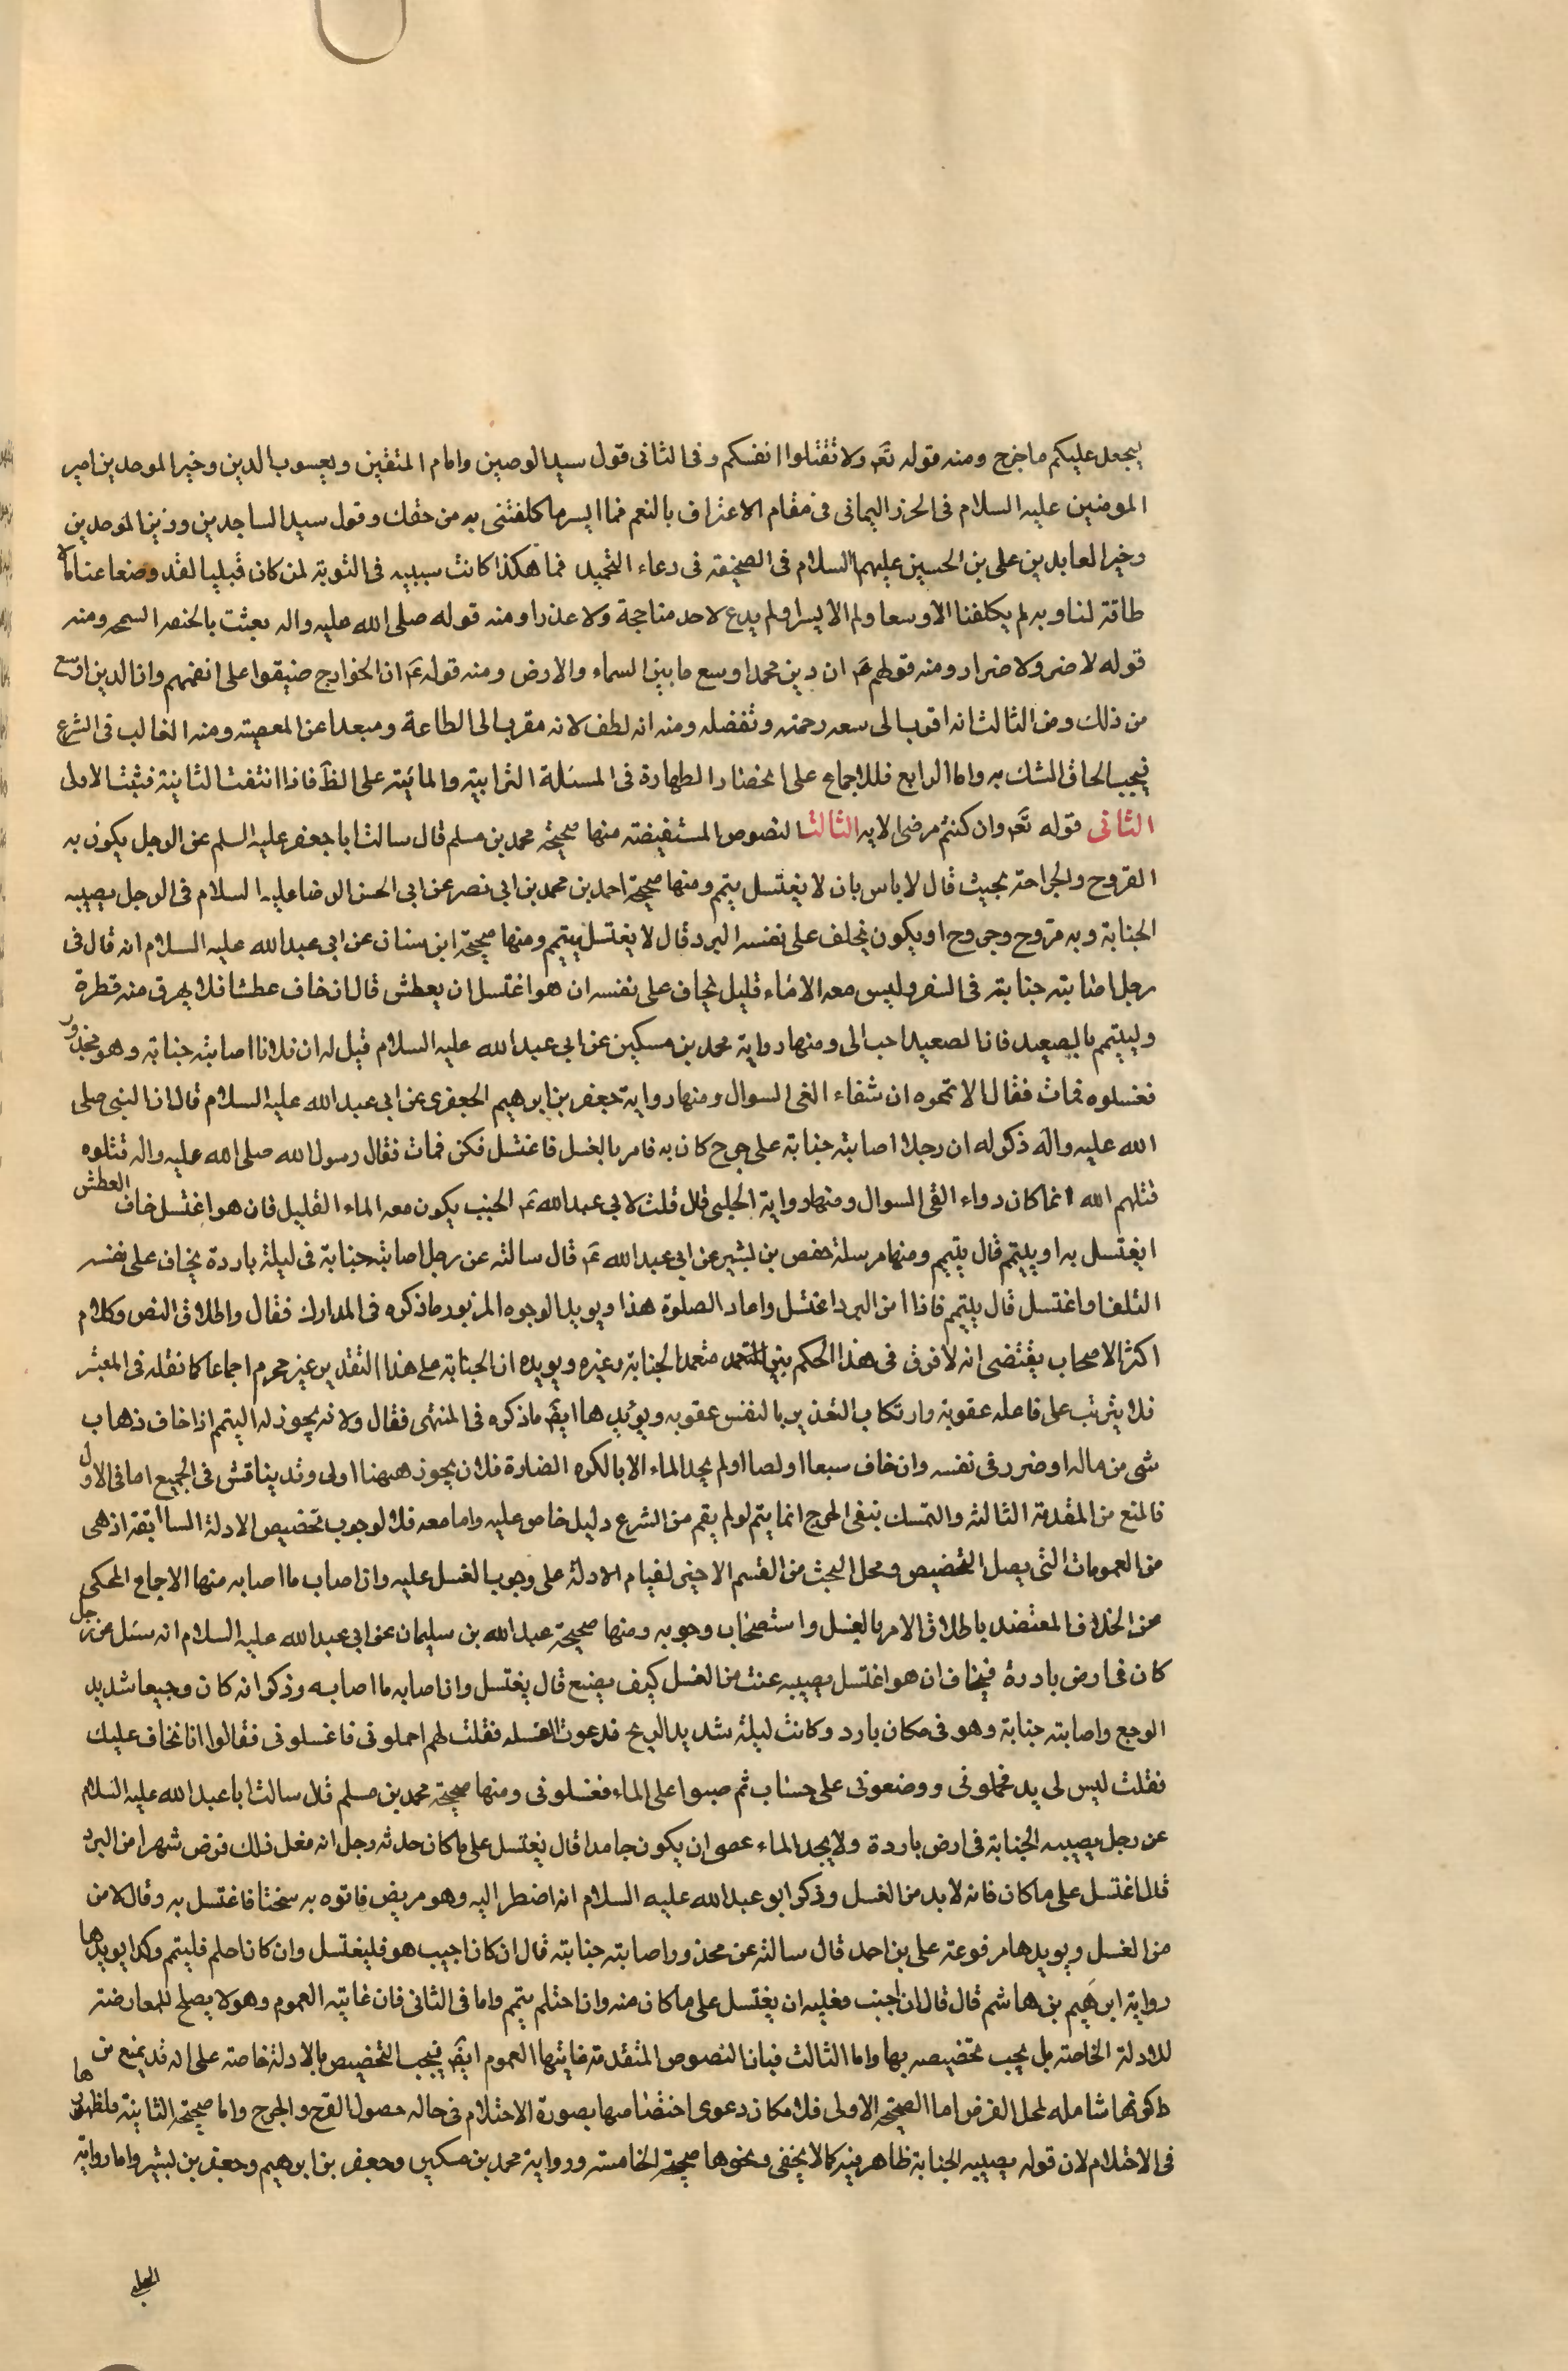 يجعل عليكم ما خرج ومنه قوله تعَ ولا تقتلوا انفسكم وفى الثانى قول سيد الوصين وامام المتقين ويعسوب الدين وخير الموحدين امير
المومنين عليه السلام فى الحرز اليمانى فى مقام الاعتراف بالنعم فما ايسر ما كلفتنى به من حقك وقول سيد الساجدين وزين الموحدين
وخير العابدين على بن الحسين عليهم السلام فى الصحيفة فى دعاء التحميد فما هكذا كانت سببيه فى التوبة لمن كان قبليا لقد وضع عنا ما لا
طاقة لنا وبه لم يكلفنا الا وسعا ولم الا يسرا ولم يدع لاحد منا حجة ولا عذرا ومنه قوله صلى الله عليه واله بعثت بالحنفه السمحه ومنه
قوله لا ضرر ولا ضرار ومنه قولهم عَ ان دين محمد اوسع ما بين السماء والارض ومنه قوله عَ ان الخوارج ضيقوا على انفسهم وان الدين اوسع
من ذلك ومن الثالث انه اقرب الى سعه رحمته وتفضله ومنه انه لطف لانه مقرب الى الطاعة ومبعدا عن المعصيته ومنه الغالب فى الشرع
فيجب الحاق الشك به واما الرابع فللاجماع على انحصار الطهارة فى المسئلة الترابية والمائية على الظَ فاذا انتفت الثانية فثبت الاولى
الثانى قوله تعَ وان كنتم مرضى الايه الثالث النصوص المستفيضته منها صحيحة محمد بن مسلم قال سالت ابا جعفر عليه السلم عن الرجل يكون به
القروح والجراحة يجنب قال لا باس بان لا يغتسل يتمم ومنها صحيحة احمد بن محمد بن ابى نصر عن ابى الحسن الرضا عليه السلام فى الرجل يصيبه
الجنابة وبه قروح وجروح او يكون يخلف على نفسه البرد قال لا يغتسل يتيمم ومنها صحيحة ابن سنان عن ابى عبد الله عليه السلام انه قال فى
رجل اصابته جنابته فى السفر وليس معه الا ماء قليل يخاف على نفسه ان هو اغتسل ان يعطش قال ان خاف عطشا فلا يهرق منه قطرة
وليتيمم بالصعيد فان الصعيد احب الى ومنها رواية محمد بن مسكين عن ابى عبد الله عليه السلام قيل له ان فلانا اصابته جنابة وهو مجذور
فغسلوه فمات فقال الا تمموه ان شفاء الغى السوال ومنها رواية جعفر بن ابرهيم الجعفرى عن ابى عبد الله عليه السلام قال ان النبى صلى
الله عليه وآله ذكر له ان رجلا اصابته جنابة على جرح كان به فامر بالغسل فاغتسل فكن فمات فقال رسول الله صلى الله عليه واله قتلوه
قتلهم الله انما كان دواء الغى السوال ومنها رواية الحلبى قال قلت لابى عبد الله عَ الجنب يكون معه الماء القليل فان هو اغتسل خاف العطش
ايغتسل به او يتيمم قال يتيمم ومنها مرسلة حفص بن بشير عن ابى عبد الله عَ قال سالته عن رجل اصابته جنابة فى ليلة باردة يخاف على نفسه
التلف ان اغتسل قال يتيمم فاذا امن البرد اغتسل واعاد الصلوة هذا ويويد الوجوه المزبور ما ذكره فى المدارك فقال واطلاق النص وكلام
اكثر الاصحاب يقتضى انه لا فرق فى هذا الحكم بين متعمد الجنابة وغيره ويويده ان الجنابة على هذا التقدير غير محرم اجماعا كما نقله فى المعتبر
فلا يترتب على فاعله عقوبة وارتكاب التغذير بالنفس عقوبه ويويدها ايضَ ما ذكره فى المنتهى فقال ولانه يجوز له التيمم اذا خاف ذهاب
شى من ماله او ضرر فى نفسه وان خاف سبعا او لصا او لم يجد الماء الا بالكره الضارة فلان يجوز هيهنا اولى وقد يناقش فى الجميع اما فى الاول
فالمنع من المقدمة الثالثه والتمسك بنفى الحرج انما يتم لو لم يقم من الشرع دليل خاص عليه واما معه فلا لوجوب تخصيص الادلة السابقة اذ هى
من العمومات التى يصل التخصيص ومحل البحث من القسم الاخير لقيام الادلة على وجوب الغسل عليه وان اصاب ما اصابه منها الاجماع المحكى
عن الخلاف المعتضد باطلاق الامر بالغسل واستصحاب وجوبه ومنها صحيحة عبد الله بن سليمان عن ابى عبد الله عليه السلام انه سئل عن رجل
كان فى ارض باردة فيخاف ان هو اغتسل يصيبه عنت من الغسل كيف يصنع قال يغتسل وان اصابه ما اصابه وذكر انه كان وجيعا شديد
الوجع واصابته جنابة وهو فى مكان بارد وكانت ليلة شديد الريح فدعوت الغسله فقلت لهم احملونى فاغسلونى فقالوا انا نخاف عليك
فقلت ليس لى بد فحملونى ووضعونى على خشاب ثم صبوا على الماء فغسلونى ومنها صحيحة محمد بن مسلم قال سالت ابا عبد الله عليه السلام
عن رجل يصيبه الجنابة فى ارض باردة ولا يجد الماء عصى ان يكون جامدا قال يغتسل على ما كان حدثه رجل انه فعل ذلك فرض شهرا من البرد
قال اغتسل على ما كان فانه لا بد من الغسل وذكر ابو عبد الله عليه السلام انه اضطر اليه وهو مريض فاتوه به سخنا فاغتسل به وقال لا من
من الغسل ويويدها مرفوعة على بن احمد قال سالته عن محذور اصابته جنابته قال ان كان اجيب هو فليغتسل وان كان احلم فليتمم وكذا يويدها
رواية ابرهَيم بن هاشم قال قال ان اجنب فعليه ان يغتسل على ما كان منه وان احتلم يتمم واما فى الثانى فان غايته العموم وهو لا يصلح للمعارضته
للادلة الخاصة بل يجب تخصيصه بها واما الثالث فبان النصوص المتقدمة غايتها العموم ايضَ فيجب التخصيص بالادلة خاصته على انه قد يمنع من
كونها شامله لمحل الفرض اما الصحيحة الاولى فلامكان دعوى اختصاصها بصورة الاحتلام فى حاله حصول القرح والجرح واما صحيحة الثانية فلظهورها
فى الاحتلام لان قوله يصيبه الجنابة ظاهر فيه كما لا يخفى ونحوها صحيحة الخامسته ورواية محمد بن مسكين وجعفر بن ابرهيم وجعفر بن بشير واما رواية